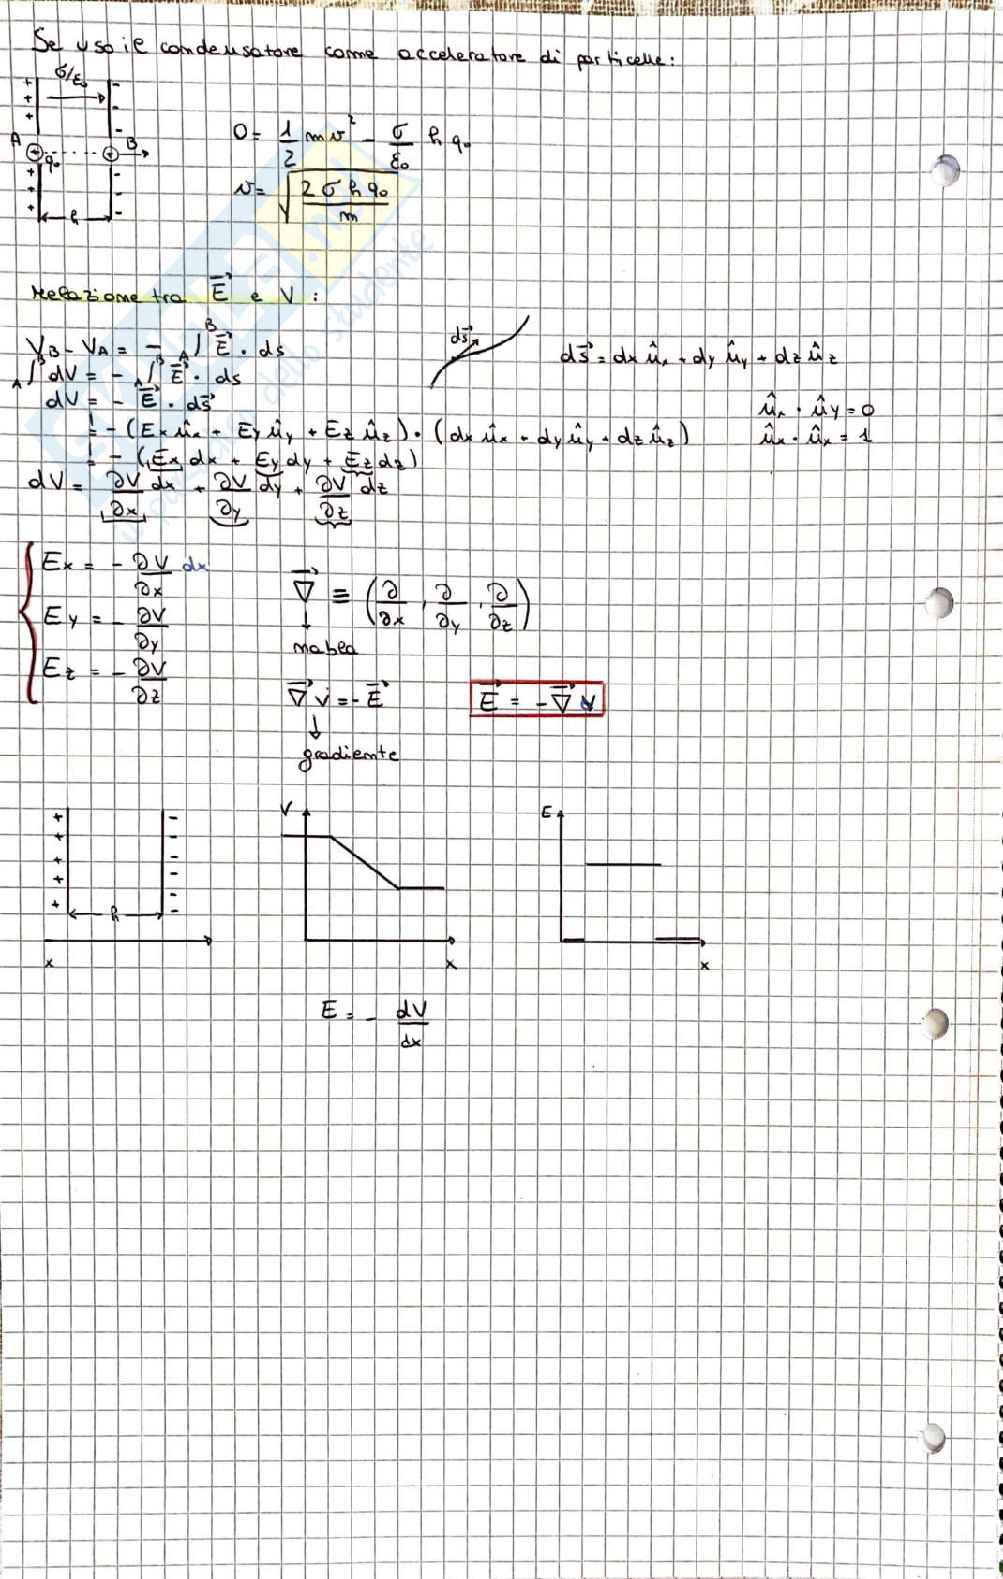 Se uso il condensatore come acceleratore di particelle:
+ σ/ε₀ -
+ -
+ -
A + q₀ + B
+ -
+ -
+ h -
0 = 1/2 mv² - σ/ε₀ h q₀
v = √(2 σ h q₀ / m)
relazione tra E⃗ e V :
V_B - V_A = - _A∫^B E⃗ · ds
_A∫^B dV = - _A∫^B E⃗ · ds
dV = - E⃗ · ds⃗
ds⃗
ds⃗ = dx û_x + dy û_y + dz û_z
û_x · û_y = 0
û_x · û_x = 1
= - (E_x û_x + E_y û_y + E_z û_z) · (dx û_x + dy û_y + dz û_z)
= - (E_x dx + E_y dy + E_z dz)
dV = ∂V/∂x dx + ∂V/∂y dy + ∂V/∂z dz
E_x = - ∂V/∂x dx
E_y = - ∂V/∂y
E_z = - ∂V/∂z
∇⃗ ≡ (∂/∂x, ∂/∂y, ∂/∂z)
nabla
∇⃗ V = - E⃗
gradiente
E⃗ = - ∇⃗ V
+ -
+ -
+ -
+ -
+ h -
x
V
x
E
x
E = - dV/dx